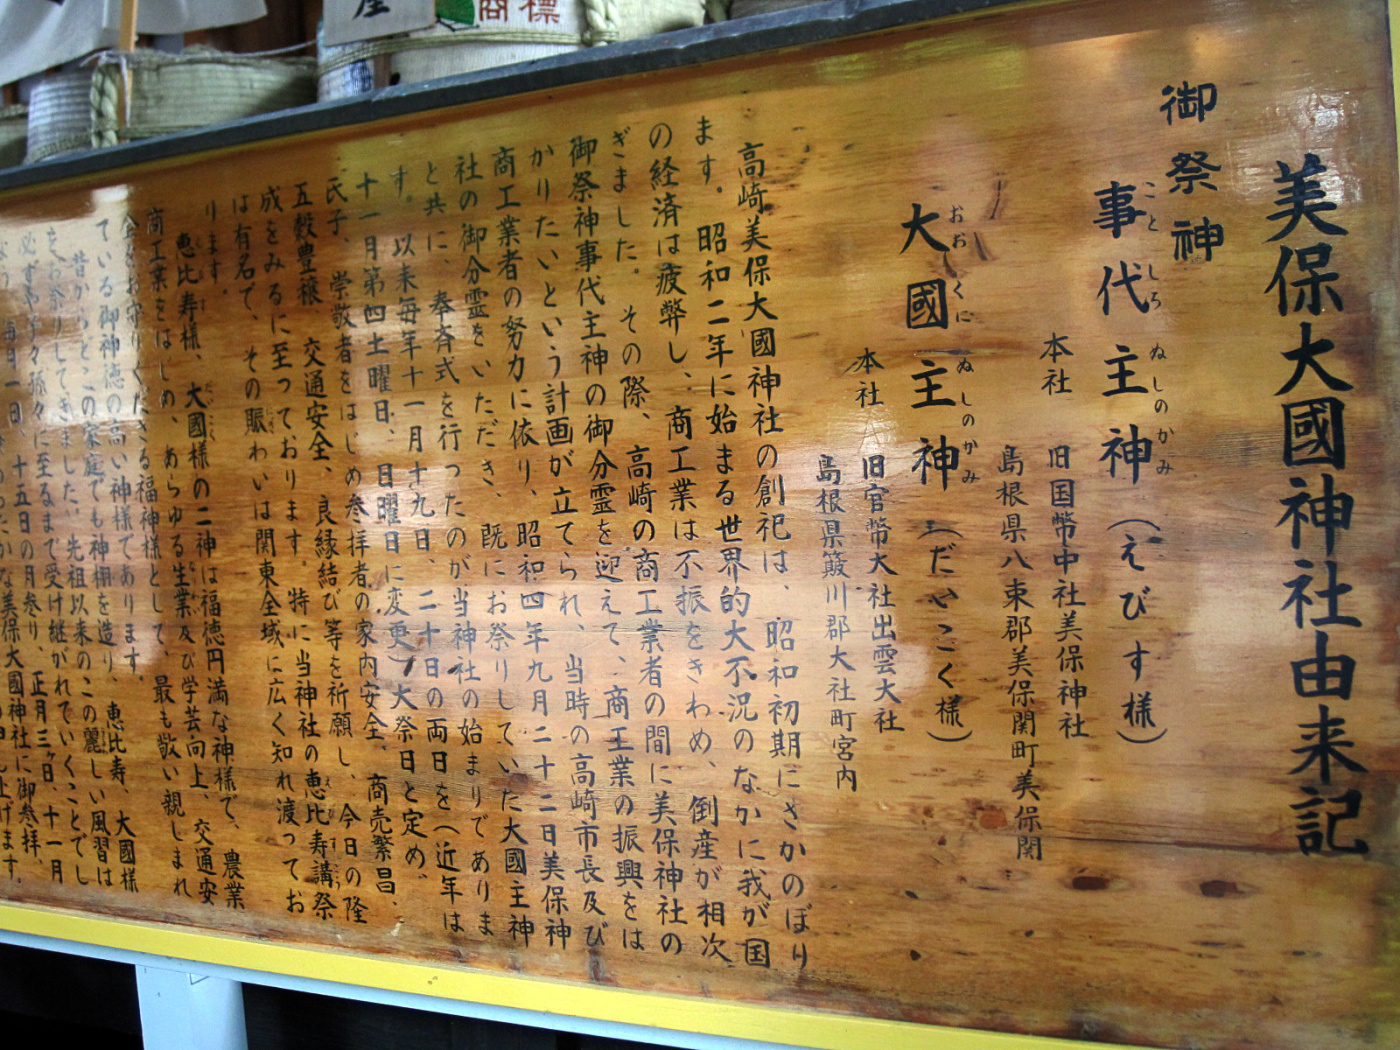 美保大國神社由来記
御祭神
事代主神（えびす様）
ことしろぬしのかみ
本社 旧国幣中社美保神社
島根県八束郡美保関町美保関
大國主神（だいこく様）
おおくにぬしのかみ
本社 旧官幣大社出雲大社
島根県簸川郡大社町宮内
高崎美保大國神社の創祀は、昭和初期にさかのぼり
ます。昭和二年に始まる世界的大不況のなかに我が国
の経済は疲弊し、商工業は不振をきわめ、倒産が相次
ぎました。その際、高崎の商工業者の間に美保神社の
御祭神事代主神の御分霊を迎えて、商工業の振興をは
かりたいという計画が立てられ、当時の高崎市長及び
商工業者の努力に依り、昭和四年九月二十二日美保神
社の御分霊をいただき、既にお祭りしていた大國主神
と共に、奉斉式を行ったのが当神社の始まりでありま
す。以来毎年十一月十九日、二十日の両日を（近年は
十一月第四土曜日、日曜日に変更）大祭日と定め、
氏子、崇敬者をはじめ参拝者の家内安全、商売繁昌、
五穀豊穣、交通安全、良縁結び等を祈願し、今日の隆
成をみるに至っております。特に当神社の恵比寿講祭
は有名で、その賑わいは関東全域に広く知れ渡ってお
ります。
恵比寿様、大國様の二神は福徳円満な神様で、農業
商工業をはじめ、あらゆる生業及び学芸向上、交通安
全をお守りくださる福神様として、最も敬い親しまれ
ている御神徳の高い神様であります。
昔からどこの家庭でも神棚を造り、恵比寿、大國様
をお祭りしてきました。先祖以来のこの麗しい風習は
必ずや子々孫々に至るまで受け継がれていくことでし
毎月一日、十五日の月参り、正月三ヶ日、十一月
美保大國神社に御参拝
上げます。
商標